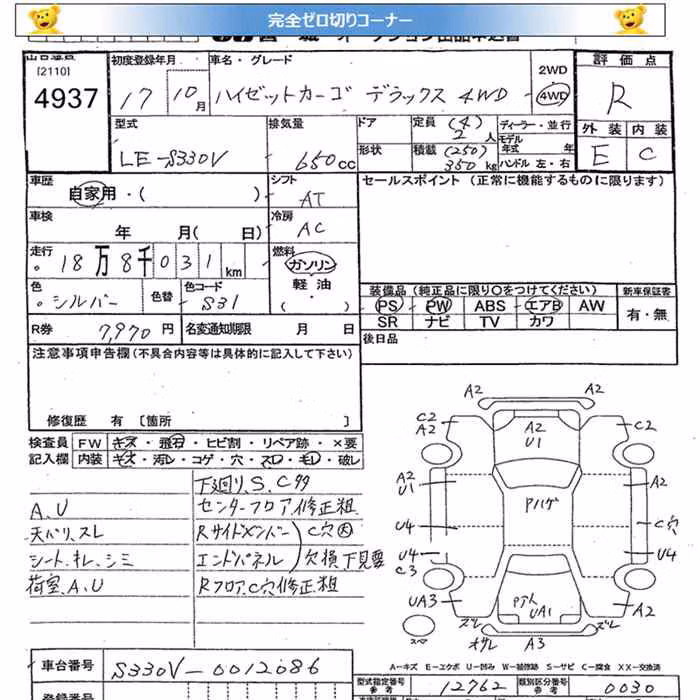 完全ゼロ切りコーナー
[2110]
4937
初度登録年月
17 10月
車名・グレード
ハイゼットカーゴ デラックス 4WD
2WD
4WD
評価点
R
外装 内装
E C
型式
LE-S330V
排気量
650cc
ドア
形状
定員 (4)
2人
積載 (250)
350kg
ディーラー・並行
モデル
年式 年
ハンドル 左・右
車歴
自家用・( )
シフト
AT
セールスポイント (正常に機能するものに限ります)
車検
年 月( 日)
冷房
AC
走行
18万8千031km
燃料
ガソリン
軽油
( )
色
シルバー
色替
色コード
S31
装備品 (純正品に限り○をつけてください)
PS PW ABS エアB AW
SR ナビ TV カワ
新車保証書
有・無
R券 7,970円
名変通知期限 月 日
後日品
注意事項申告欄(不具合内容等は具体的に記入して下さい)
修復歴 有 〔箇所 〕
検査員
記入欄
FW キズ・飛石・ヒビ割・リペア跡・×要
内装 キズ・汚レ・コゲ・穴・スレ・モレ・破レ
下廻リ、S、C多
A、U センターフロア修正粗
天バリ、スレ Rサイドメンバー C穴大
シート、キレ、シミ エンドパネル 欠損下見要
荷室、A、U Rフロア、C穴修正粗
A2 A2
C2
A2
A2
U1
C2
A2
U1
A2
Pハゲ
U4
C穴
U4
C3
U4
UA3
UA1
A2
スペア
ズレ
オサレ
A3
ズレ
A=キズ E=エクボ U=凹み W=補修跡 S=サビ C=腐食 XX=交換済
車台番号 S330V-0012086
登録番号
型式指定番号
参考
12762
類別区分番号
参考
0030